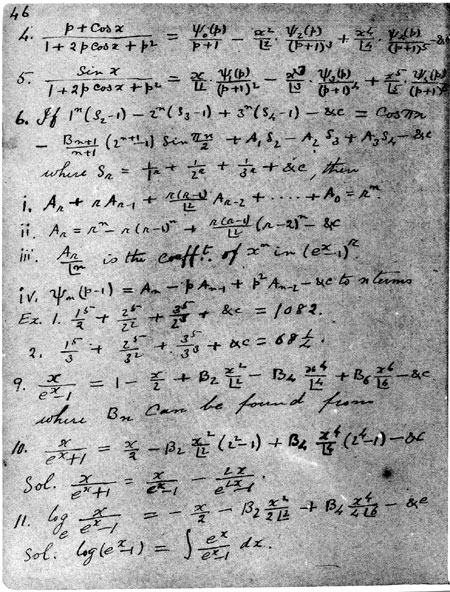 46
4. (p + Cos x)/(1 + 2p Cos x + p²) = ψ₀(p)/(p+1) − x²/⌊2 · ψ₂(p)/(p+1)³ + x⁴/⌊4 · ψ₄(p)/(p+1)⁵ − &c
5. Sin x/(1 + 2p Cos x + p²) = x/⌊1 · ψ₁(p)/(p+1)² − x³/⌊3 · ψ₃(p)/(p+1)⁴ + x⁵/⌊5 · ψ₅(p)/(p+1)⁶
6. If 1ⁿ(S₂−1) − 2ⁿ(S₃−1) + 3ⁿ(S₄−1) − &c = Cos πn
− Bₙ₊₁/(n+1) (2ⁿ⁺¹−1) Sin πn/2 + A₁S₂ − A₂S₃ + A₃S₄ − &c
where Sₙ = 1/1ⁿ + 1/2ⁿ + 1/3ⁿ + &c, then
i. Aᵣ + r Aᵣ₋₁ + r(r−1)/⌊2 Aᵣ₋₂ + ····· + A₀ = rⁿ.
ii. Aᵣ = rⁿ − r(r−1)ⁿ + r(r−1)/⌊2 (r−2)ⁿ − &c
iii. Aᵣ/⌊n is the coefft. of xⁿ in (eˣ−1)ʳ.
iv. ψₙ(p−1) = Aₙ − p Aₙ₋₁ + p² Aₙ₋₂ − &c to n terms
Ex. 1. 1⁵/2 + 2⁵/2² + 3⁵/2³ + &c = 1082.
2. 1⁵/3 + 2⁵/3² + 3⁵/3³ + &c = 68 ¼.
9. x/(eˣ−1) = 1 − x/2 + B₂ x²/⌊2 − B₄ x⁴/⌊4 + B₆ x⁶/⌊6 − &c
where Bₙ can be found from
10. x/(eˣ+1) = x/2 − B₂ x²/⌊2 (2²−1) + B₄ x⁴/⌊4 (2⁴−1) − &c
Sol. x/(eˣ+1) = x/(eˣ−1) − 2x/(e²ˣ−1).
11. logₑ x/(eˣ−1) = − x/2 − B₂ x²/2⌊2 + B₄ x⁴/4⌊4 − &c
Sol. log(eˣ−1) = ∫ eˣ/(eˣ−1) dx.